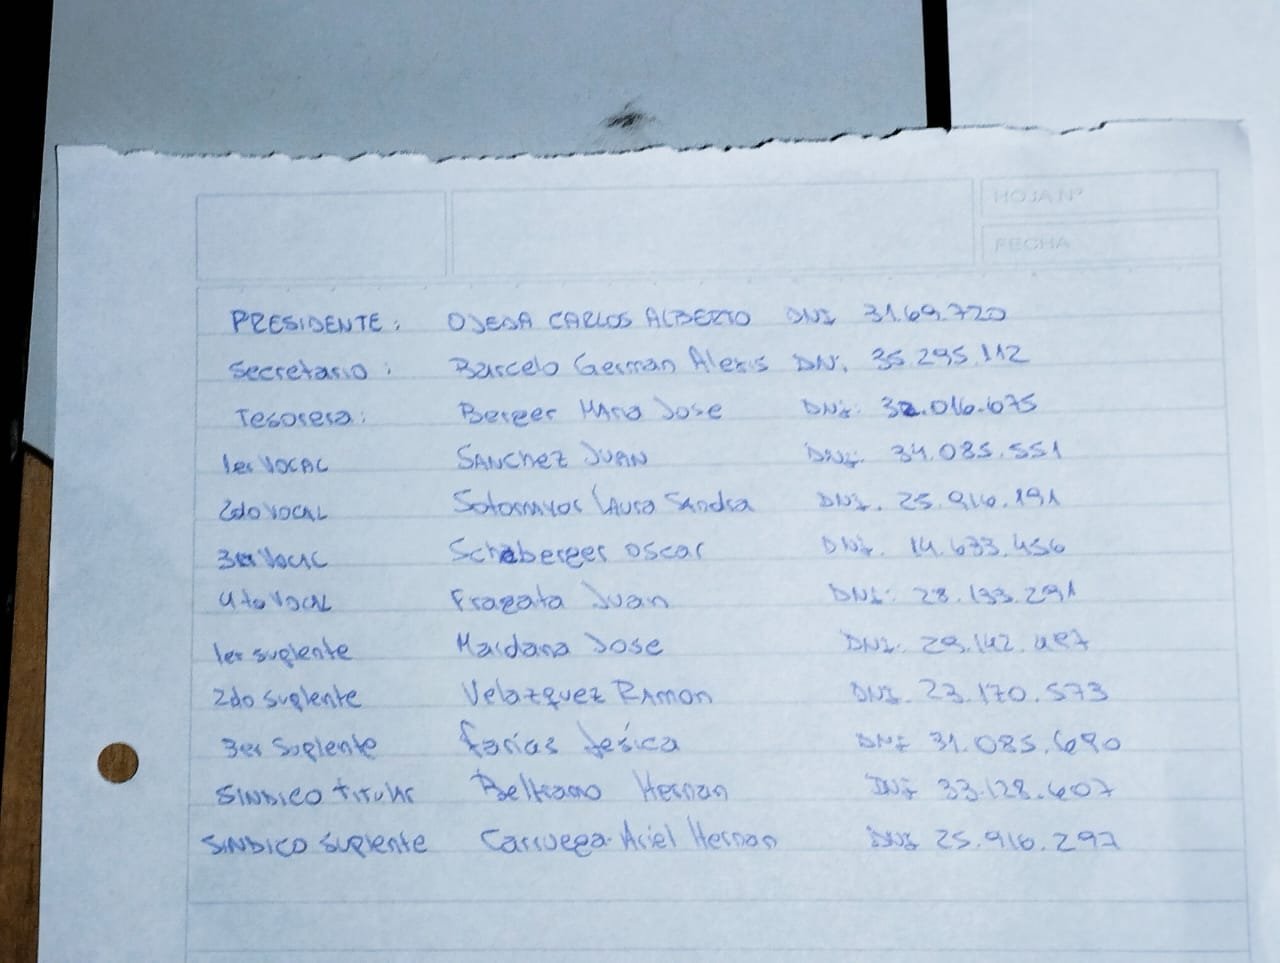 HOJA Nº
FECHA
PRESIDENTE: OJEDA CARLOS ALBERTO DNI 31.69.720
Secretario: Barcelo German Alexis DNi. 35.295.112
Tesorera: Berger MAria Jose DNI: 32.016.675
1er VOCAL SANCHEZ JUAN DNI. 34.085.551
2do VOCAL Sotomayor LAura SAndra DNI. 25.916.191
3er VOCAL Schaberger OSCAr DNI. 14.633.456
4to VOCAL Fragata Juan DNI: 28.133.291
1er suplente Maidana Jose DNI. 29.142.487
2do suplente Velazquez RAmon DNI. 23.170.573
3er Suplente farias Jesica DNI 31.085.690
SINDICO titular Beltramo Hernan DNI 33.128.607
SINDICO Suplente Carruega Ariel Hernan DNI 25.916.297